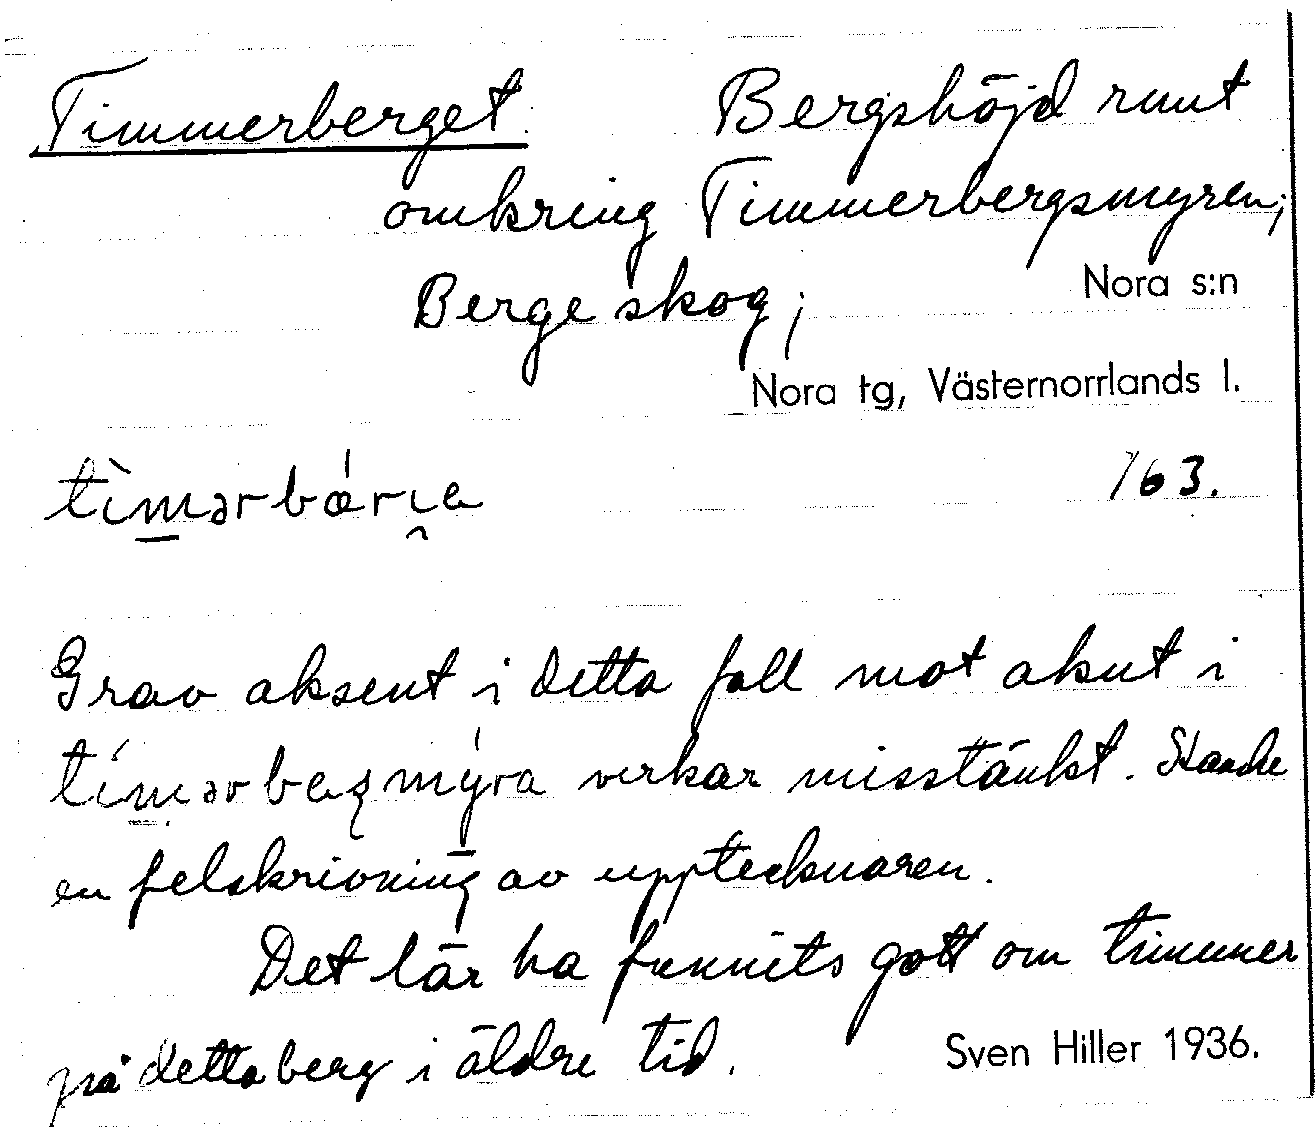 Timmerberget Bergshöjd runt
omkring Timmerbergsmyren;
Berge skog; Nora s:n
Nora tg, Västernorrlands l.
163.
tìmərbǽri̯a
Grav aksent i detta fall mot akut i
verkar misstänkt. Kanske
en felskrivning av upptecknaren.
Det lär ha funnits gott om timmer
på detta berg i äldre tid. Sven Hiller 1936.